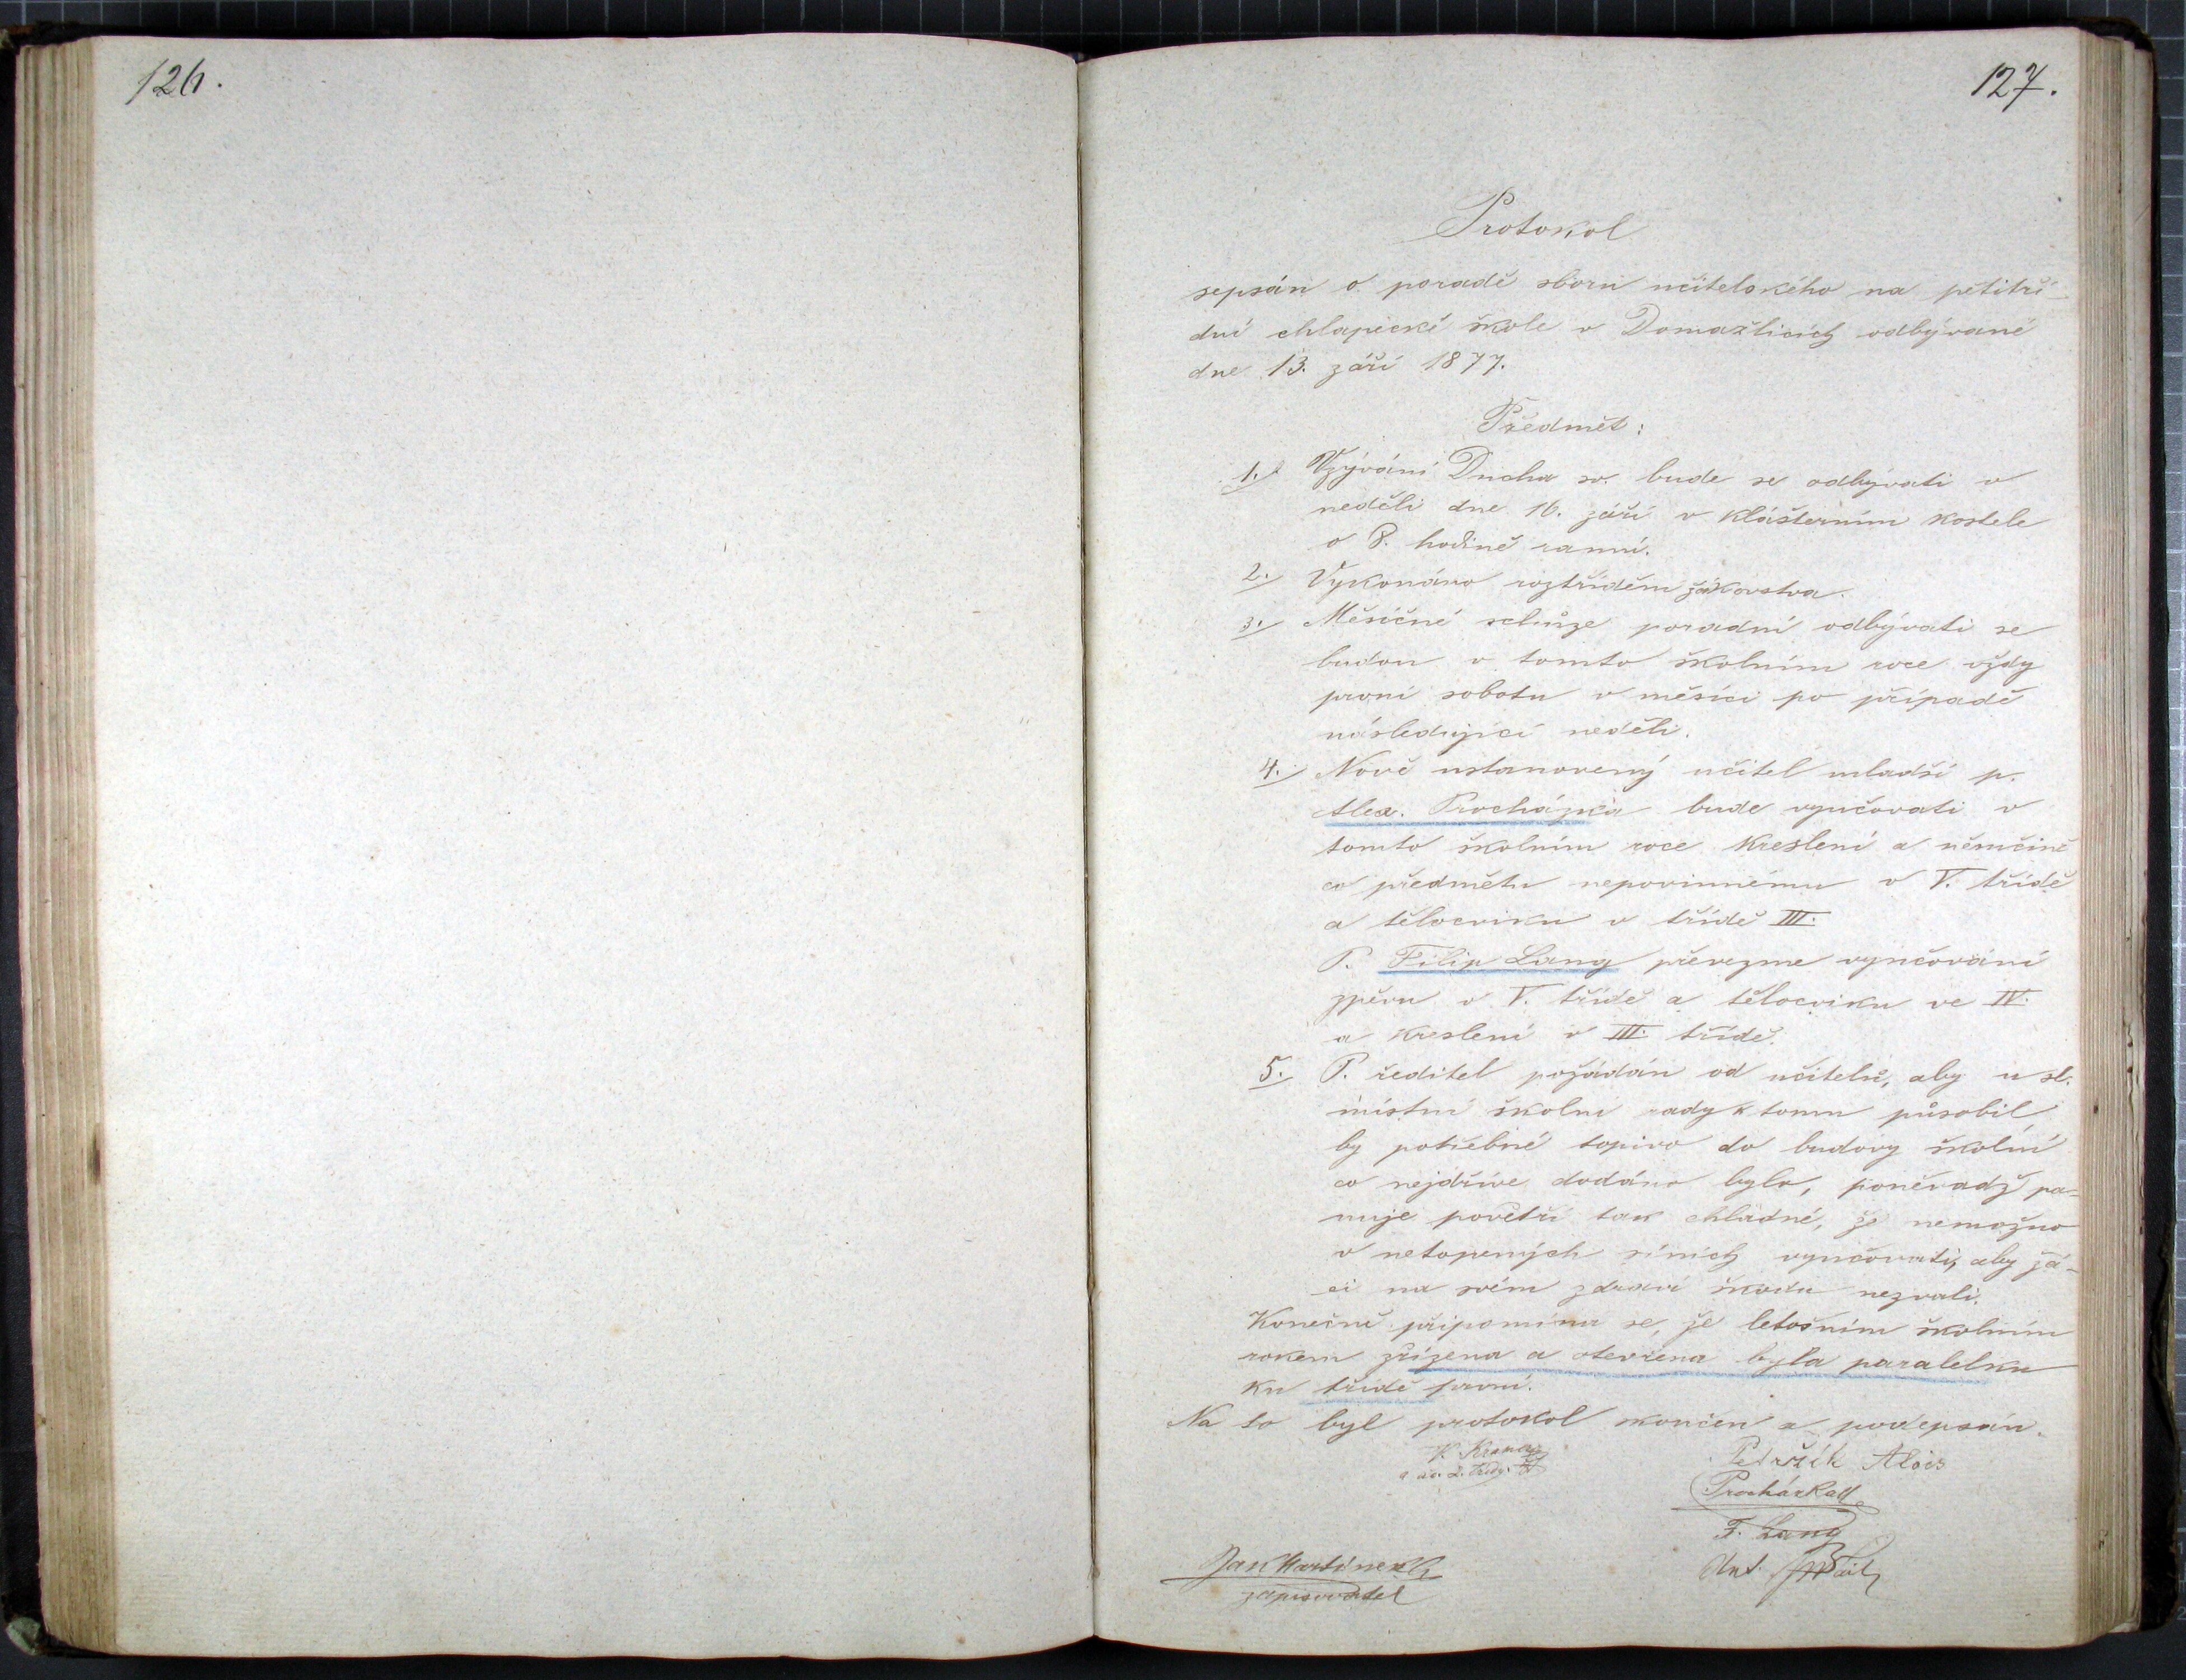 126.
127.
Protokol
sepsán o poradě sboru učitelského na pětitří-
dní chlapecké škole v Domažlicích odbývané
dne 13. září 1877.
Předmět:
1. Vzývání Ducha sv. bude se odbývati v
neděli dne 16. září v klášterním kostele
o 8. hodině ranní.
2. Vykonáno roztřídění žákovstva.
3. Měsíčné schůze poradní odbývati se
budou v tomto školním roce vždy
první sobotu v měsíci po případě
následující neděli.
4. Nově ustanovený učitel mladší p.
Alex. Procházka bude vyučovati v
tomto školním roce kreslení a němčině
co předmětu nepovinnému v V. třídě
a tělocviku v třídě III.
P. Filip Lang převezme vyučování
zpěvu v V. třídě a tělocviku ve IV.
a kreslení v III. třídě.
5. P. ředitel požádán od učitelů, aby u sl.
místní školní rady k tomu působil,
by potřebné topivo do budovy školní
co nejdříve dodáno bylo, poněvadž pa-
nuje povětří tak chladné, že nemožno
v netopených síních vyučovati, aby žá-
ci na svém zdraví škodu nezvali.
Konečně připomíná se, že letošním školním
rokem zřízena a otevřena byla paralelka
ku třídě první.
Na to byl protokol skončen a podepsán.
Petržík Alois
Procházka
F. Lang
Ant.
Jan Martinek
zapisovatel